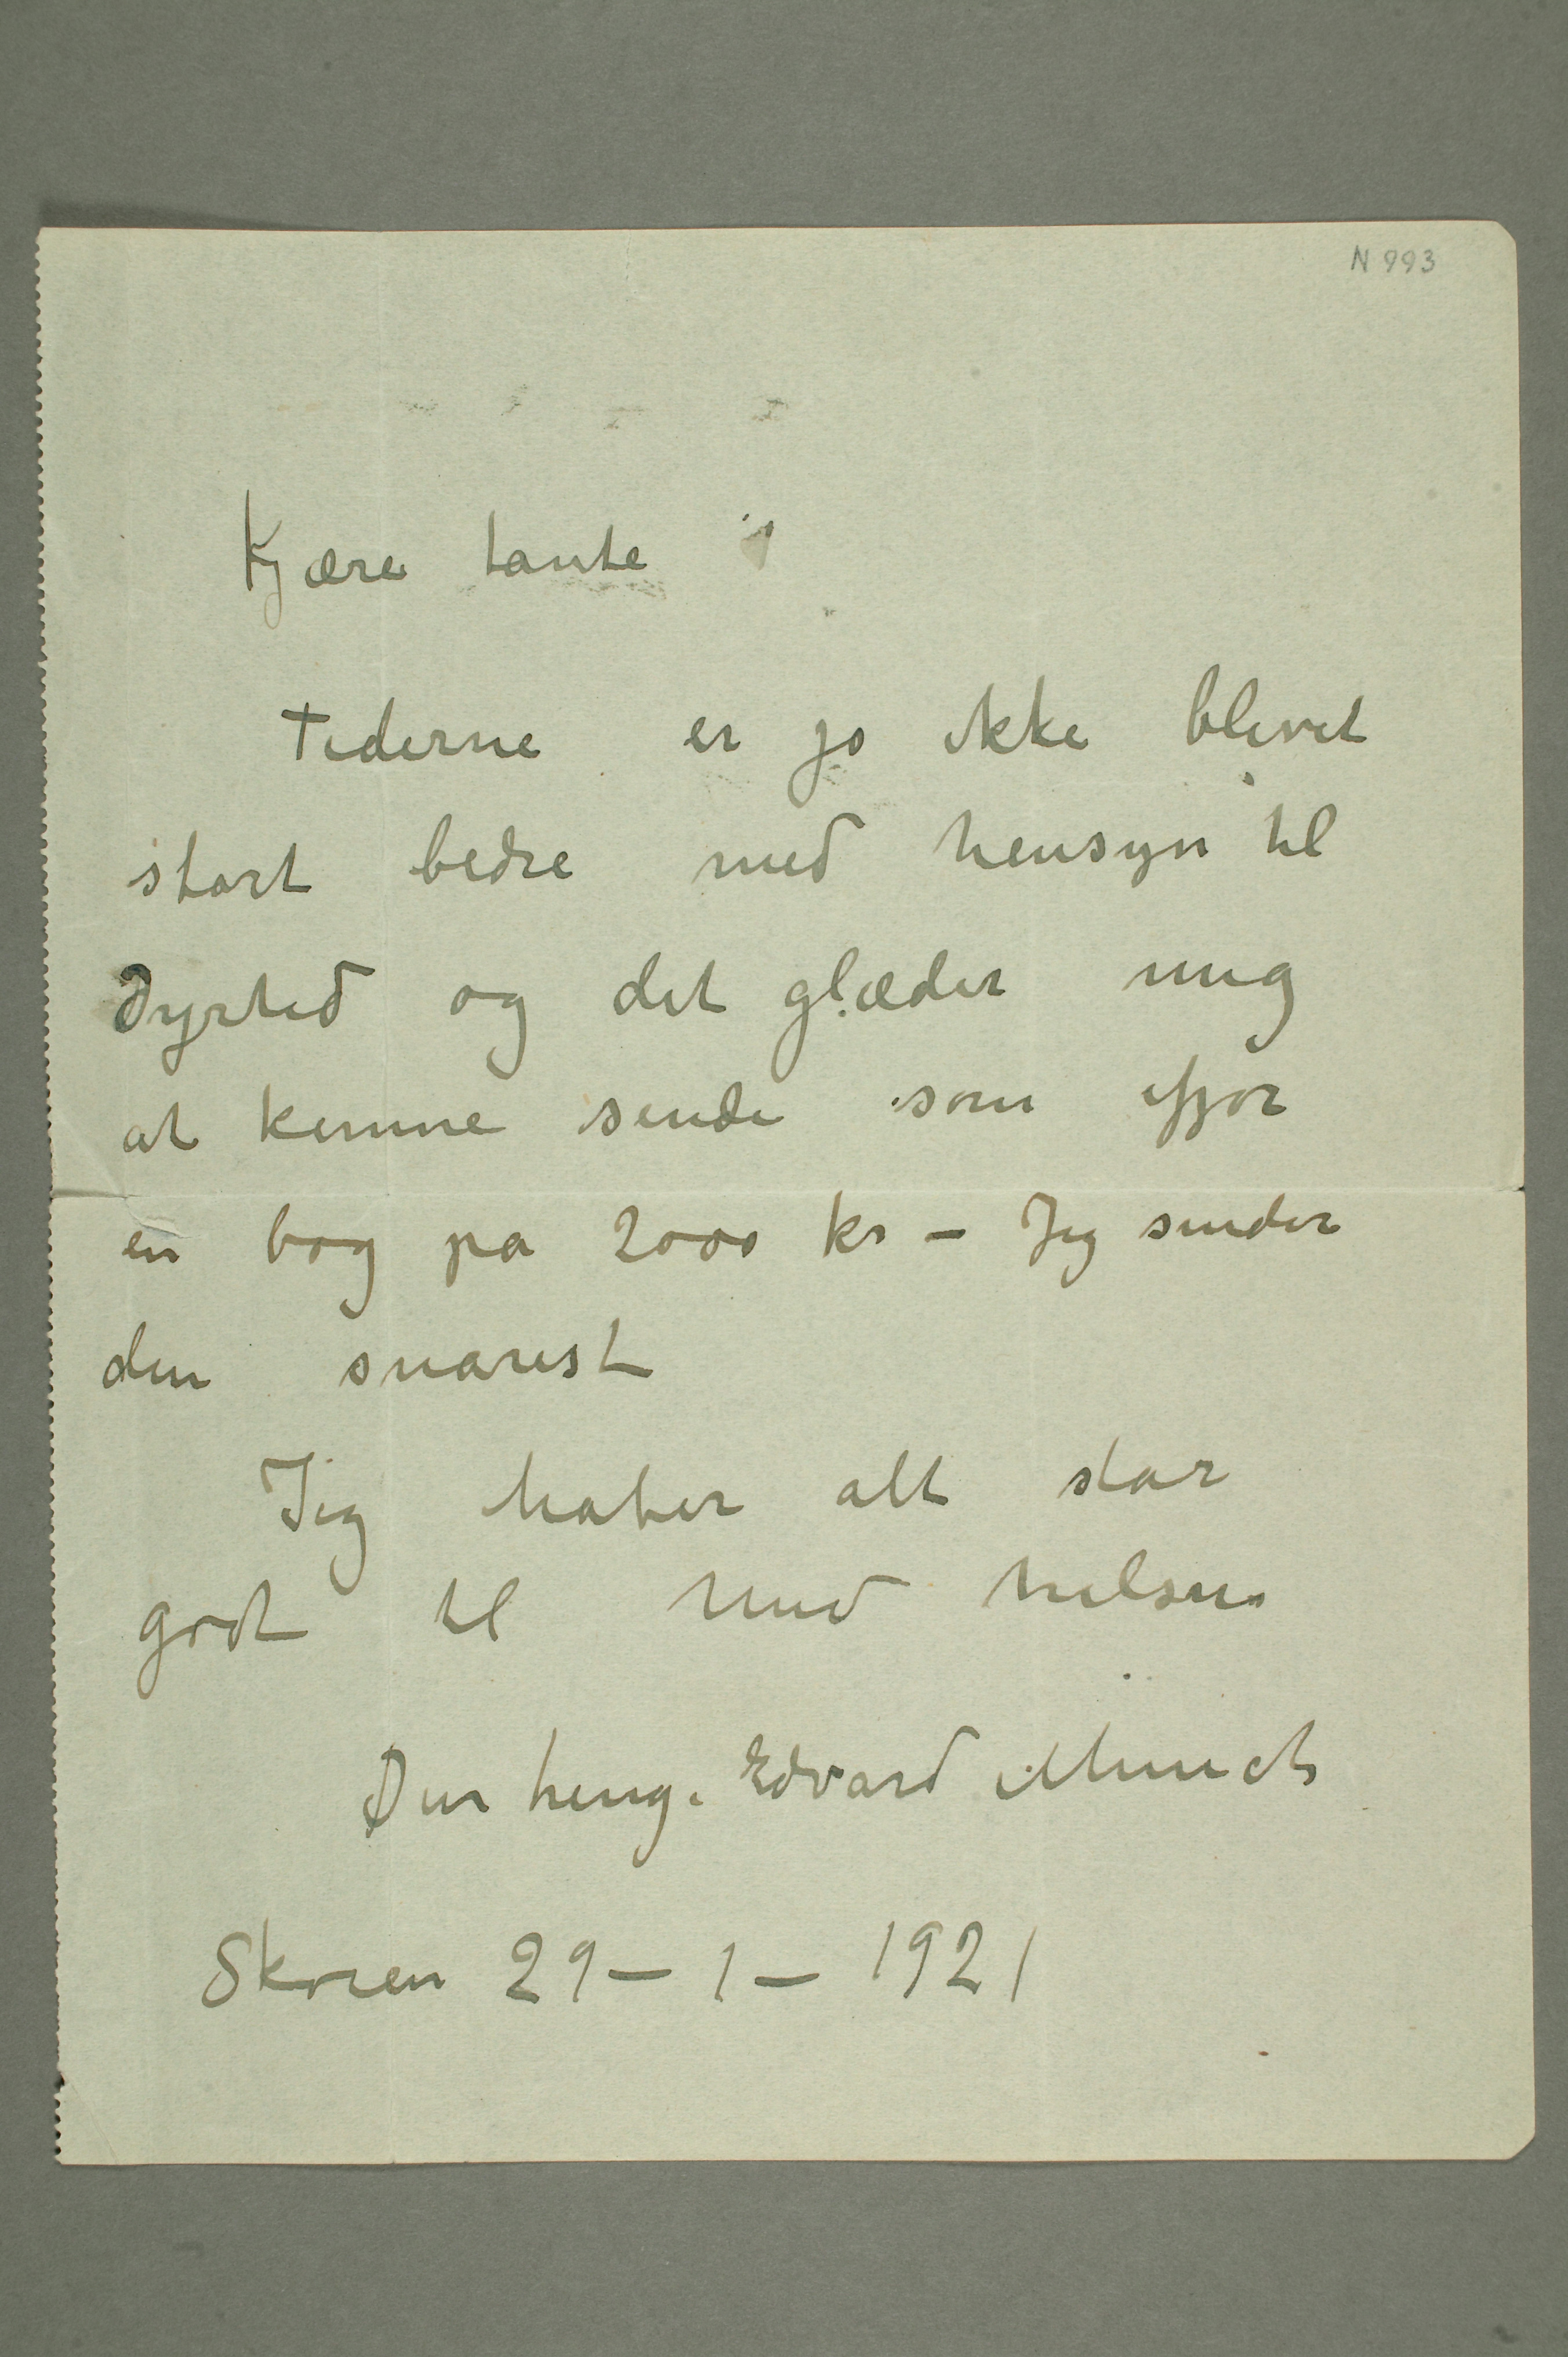 N 993
Kjære tante
Tiderne er jo ikke blevet
stort bedre med hensyn til
Dyrtid og det glæder mig
at kunne sende som ifjor
en bog på 2000 kr – Jeg sender
den snarest
Jeg håber alt står
godt til Med hilsen
Din heng. Edvard Munch
Skøien 29 – 1 – 1921